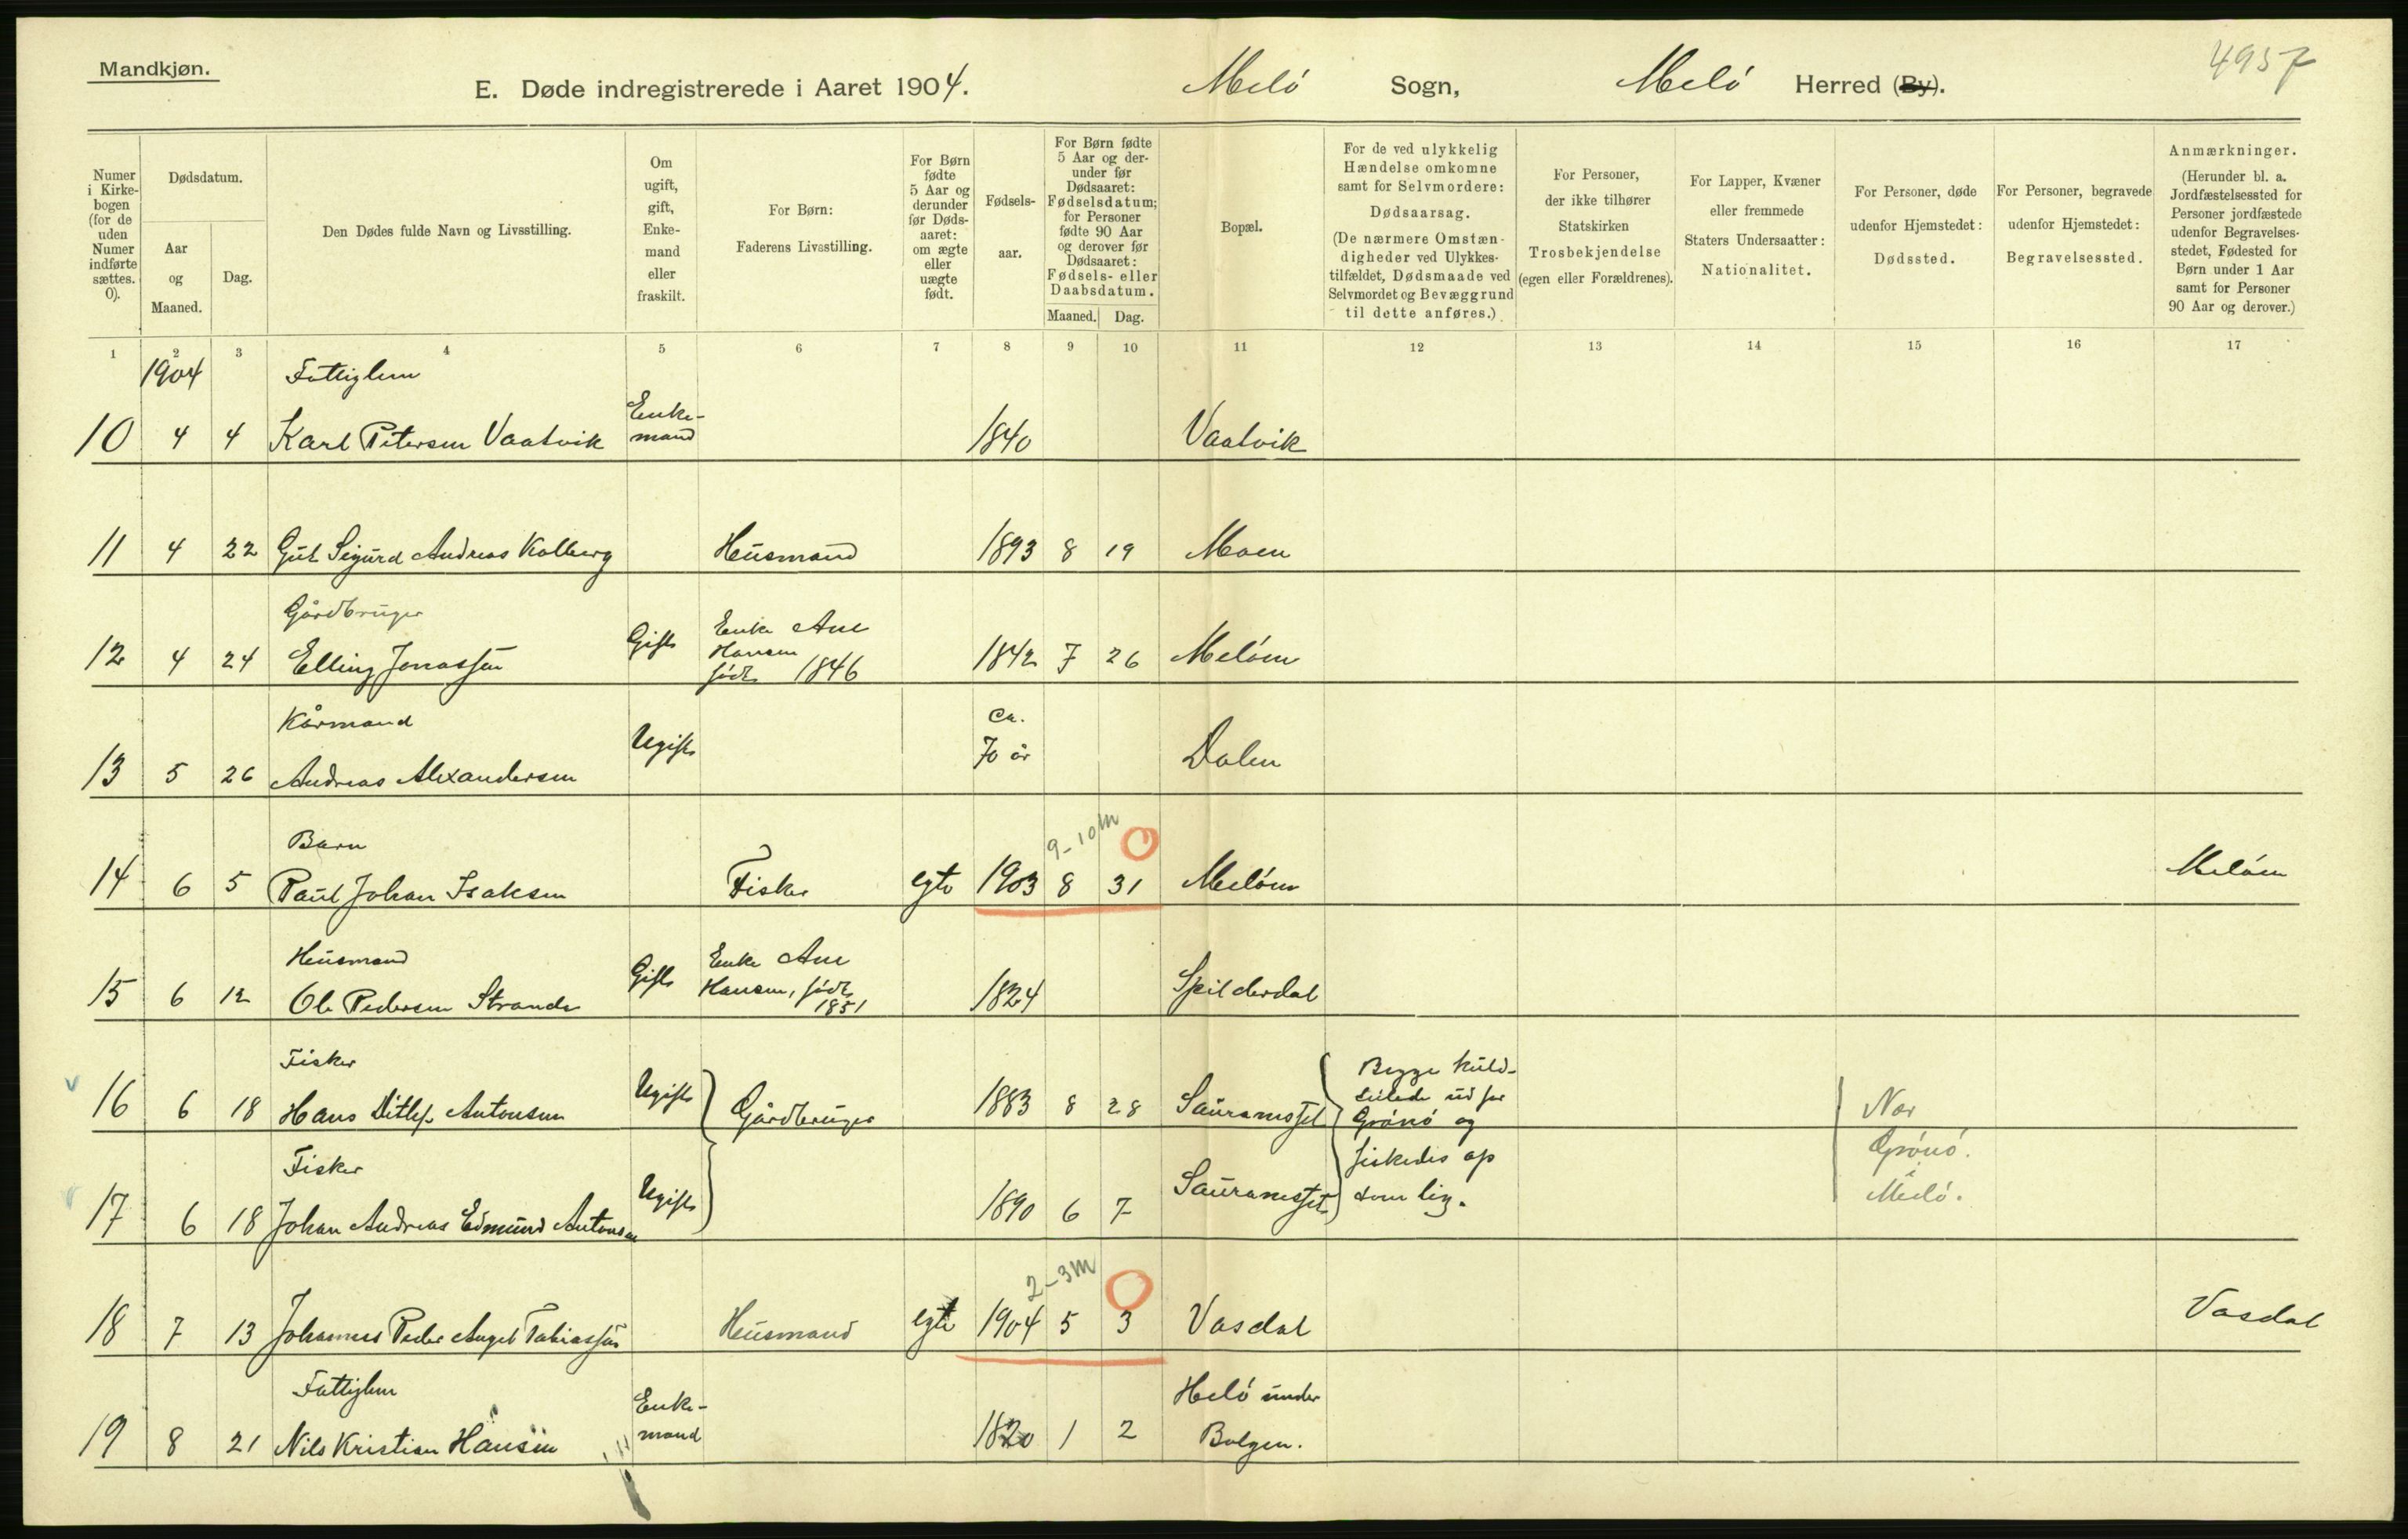 Mandkjøn.
4957
E. Døde indregistrerede i Aaret 1904. Melö Sogn, Melö Herred (By).
Numer
i Kirke-
bogen
(for de
uden
Numer
indførte
sættes.
0).
Dødsdatum.
Aar
og
Maaned.
Dag.
Den Dødes fulde Navn og Livsstilling.
Om
ugift,
gift,
Enke-
mand
eller
fraskilt.
For Børn:
Faderens Livsstilling.
For Børn
fødte
5 Aar og
derunder
før Døds-
aaret:
om ægte
eller
uægte
født.
Fødsels-
aar.
For Børn fødte
5 Aar og der-
under før
Dødsaaret:
Fødselsdatum;
for Personer
fødte 90 Aar
og derover før
Dødsaaret:
Fødsels- eller
Daabsdatum.
Maaned. Dag.
Bopæl.
For de ved ulykkelig
Hændelse omkomne
samt for Selvmordere:
Dødsaarsag.
(De nærmere Omstæn-
digheder ved Ulykkes-
tilfældet, Dødsmaade ved
Selvmordet og Bevæggrund
til dette anføres.)
For Personer,
der ikke tilhører
Statskirken
Trosbekjendelse
(egen eller Forældrenes).
For Lapper, Kvæner
eller fremmede
Staters Undersaatter:
Nationalitet.
For Personer, døde
udenfor Hjemstedet:
Dødssted.
For Personer, begravede
udenfor Hjemstedet:
Begravelsessted.
Anmærkninger.
(Herunder bl. a.
Jordfæstelsessted for
Personer jordfæstede
udenfor Begravelses-
stedet, Fødested for
Børn under 1 Aar
samt for Personer
90 Aar og derover.)
1 2 3 4 5 6 7 8 9 10 11 12 13 14 15 16 17
1904 Fattiglem
Enke-
10 4 4 Karl Petersen Vaatvik mand 1840 Vaatvik
11 4 22 Gut Sigurd Andreas Kolberg Husmand 1893 8 19 Moen
Gårdbruger
Enke Ane
Hansen
12 4 24 Elling Jonassen Gift født 1846 1842 7 26 Melöen
Kårmand Ca.
13 5 26 Andreas Alexandersen Ugift 70 år Dalen
Barn 9-10 M
14 6 5 Paul Johan Isaksen Fisker egte 1903 8 31 Melöen Melöen
Husmand Enke Ane
15 6 12 Ole Pedersen Strande Gift Hansen, født 1824 Spilderdal
1851
Fisker
16 6 18 Hans Ditlef Antonsen Ugift Gårdbruger 1883 8 28 Sauranesset
Begge kuld-
seilede udfor
Grönö og
fiskedes op
som lig.
Nær
Grönö.
Melö.
Fisker
17 6 18 Johan Andreas Edmund Antonsen Ugift 1890 6 7 Sauranesset
2-3 M
18 7 13 Johannes Peder Anget Tobiassen Husmand egte 1904 5 3 Vasdal Vasdal
Fattiglem Enke- Helö under
19 8 21 Nils Kristian Hansen mand 1820 1 2 Bolgen.